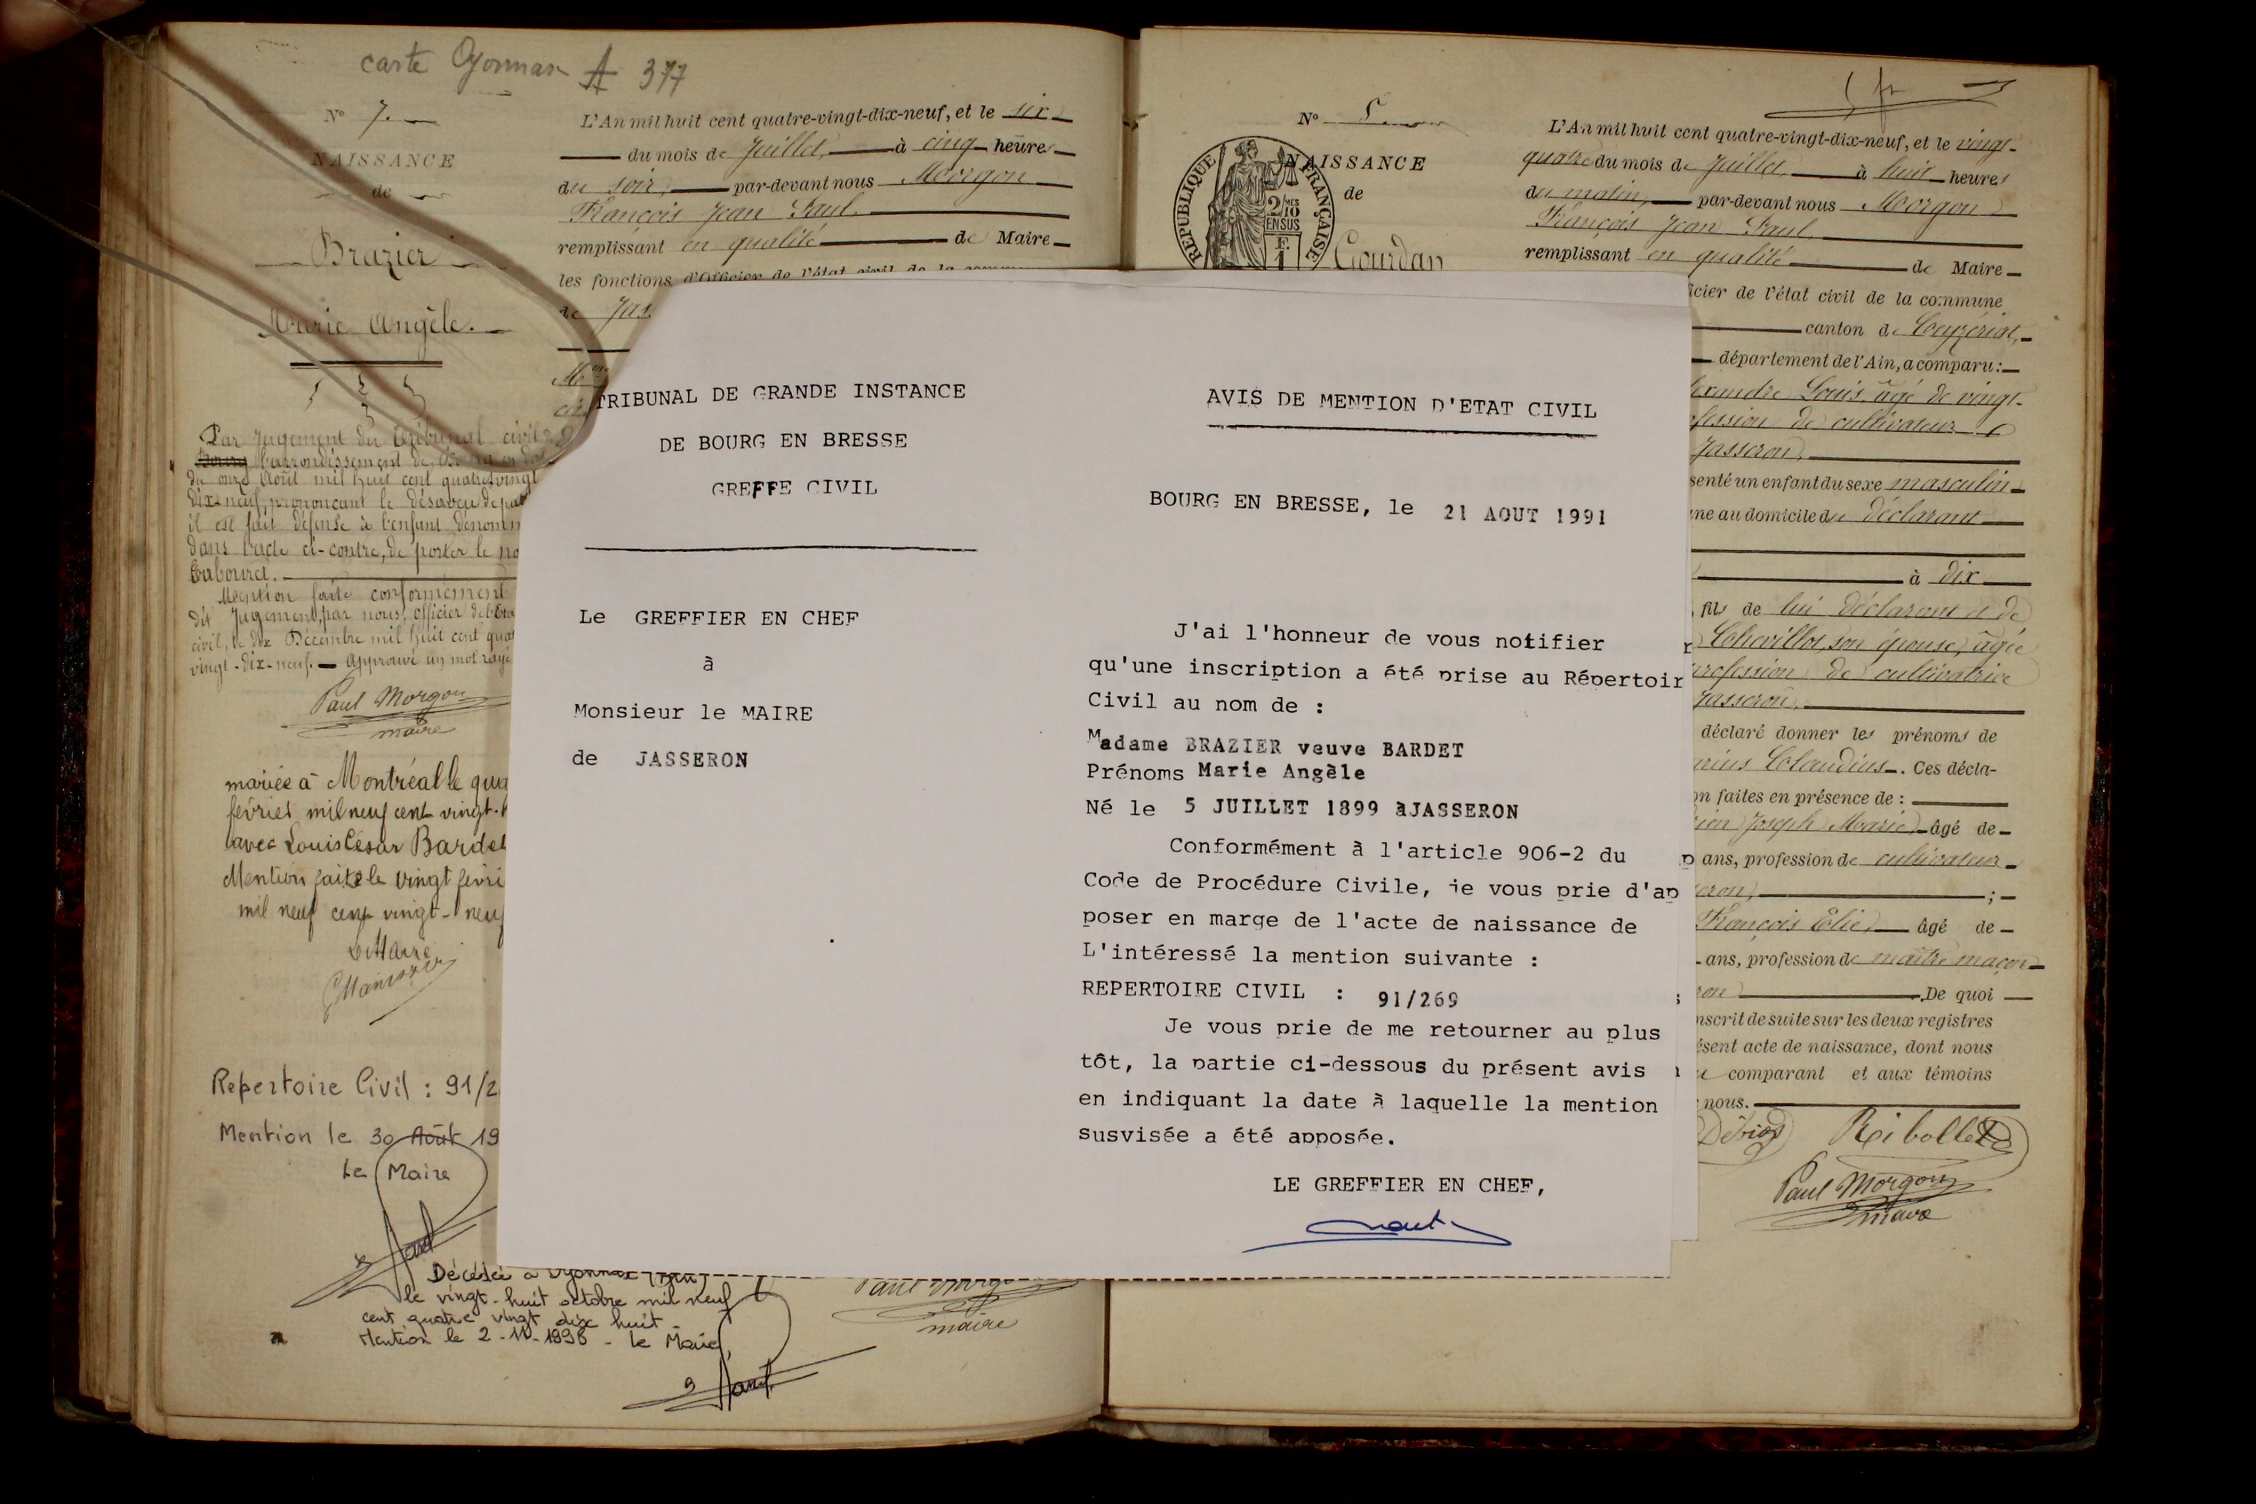 carte Oyonnax A 377
N° 7.
NAISSANCE
de
Brazier
Marie Angèle.
Par Jugement du Tribunal civil de
Bourg l'arrondissement de Bourg en date
du onze Août mil huit cent quatre vingt
dix-neuf, prononçant le désaveu de pat
il est fait défense à l'enfant dénomm
dans l'acte ci-contre, de porter le no
Mention faite conformément
dit Jugement, par nous, officier de l'Eta
civil, le dix Décembre mil huit cent quat
vingt-dix-neuf. — Approuvé un mot rayé
Paul Morgon
maire
mariée à Montréal le qua
février mil neuf cent vingt-
avec Louis César Bardet
Mention faite le vingt févri
mil neuf cent vingt-neuf
Le Maire
Repertoire Civil : 91/2
Mention le 30 Août 19
Le Maire
Décédée à Oyonnax (Ain)
le vingt-huit octobre mil neuf
cent quatre vingt dix huit -
Mention le 2-11-1998 - Le Maire,
L'An mil huit cent quatre-vingt-dix-neuf, et le six
du mois de Juillet, à cinq heures
du soir, par-devant nous Morgon
François Jean Paul
remplissant en qualité de Maire
les fonctions d'Officier de l'état civil de la commune
de Jas
Paul Morgon
maire
TRIBUNAL DE GRANDE INSTANCE
DE BOURG EN BRESSE
GREFFE CIVIL
Le GREFFIER EN CHEF
à
Monsieur le MAIRE
de JASSERON
AVIS DE MENTION D'ETAT CIVIL
BOURG EN BRESSE, le 21 AOUT 1991
J'ai l'honneur de vous notifier
qu'une inscription a été prise au Répertoir
Civil au nom de :
Madame BRAZIER veuve BARDET
Prénoms Marie Angèle
Né le 5 JUILLET 1899 àJASSERON
Conformément à l'article 906-2 du
Code de Procédure Civile, je vous prie d'ap
poser en marge de l'acte de naissance de
L'intéressé la mention suivante :
REPERTOIRE CIVIL : 91/269
Je vous prie de me retourner au plus
tôt, la partie ci-dessous du présent avis
en indiquant la date à laquelle la mention
susvisée a été apposée.
LE GREFFIER EN CHEF,
N°
NAISSANCE
de
REPUBLIQUE FRANÇAISE
2/10 MES
EN SUS
F.
1
Gourdan
L'An mil huit cent quatre-vingt-dix-neuf, et le vingt-
quatre du mois de Juillet, à huit heures
du matin, par-devant nous Morgon
François Jean Paul
remplissant en qualité de Maire
icier de l'état civil de la commune
canton de Ceyzériat,
département de l'Ain, a comparu :
exandre Louis, âgé de vingt-
fession de cultivateur
Jasseron,
senté un enfant du sexe masculin
ne au domicile du déclarant
à dix
fils de lui déclarant et de
Chevillot, son épouse, âgée
profession de cultivatrice
Jasseron,
déclaré donner les prénoms de
rius Claudius. Ces décla-
on faites en présence de :
ien Joseph Marie, âgé de
ans, profession de cultivateur
eron, ;
François Elie, âgé de
ans, profession de maître maçon
ron De quoi
nscrit de suite sur les deux registres
ésent acte de naissance, dont nous
u comparant et aux témoins
nous.
Ribollet
Paul Morgon
maire